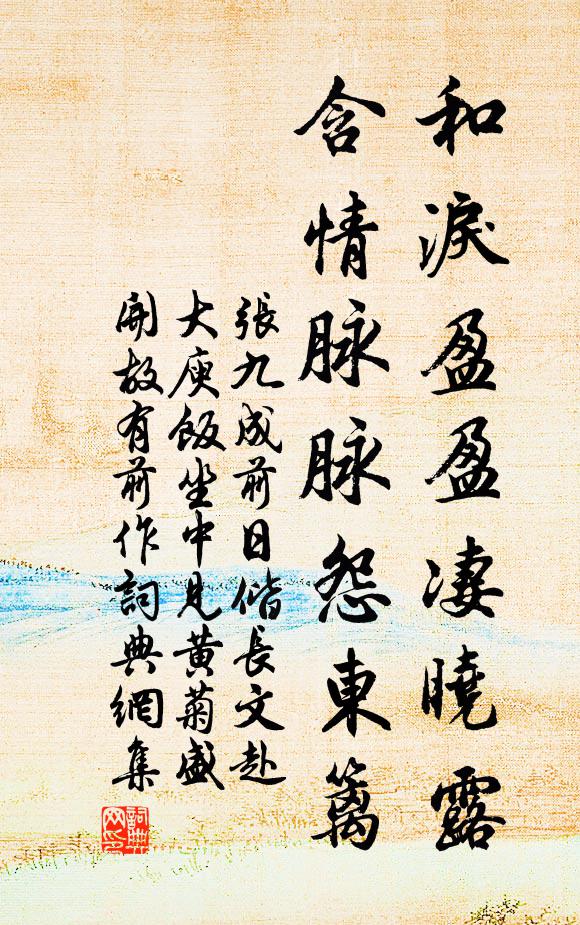 和淚盈盈凄曉露
含情脉脉怨東籬
張九成前日偕長文赴
大庾飯坐中見黃菊盛
開故有前作詞典網集
詞典网印